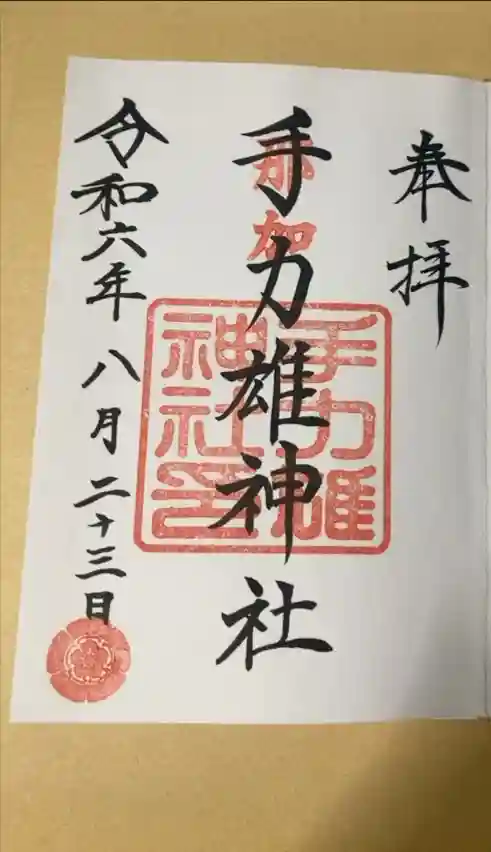 奉拝
那加
手力雄神社
手力雄
神社
令和六年八月二十三日